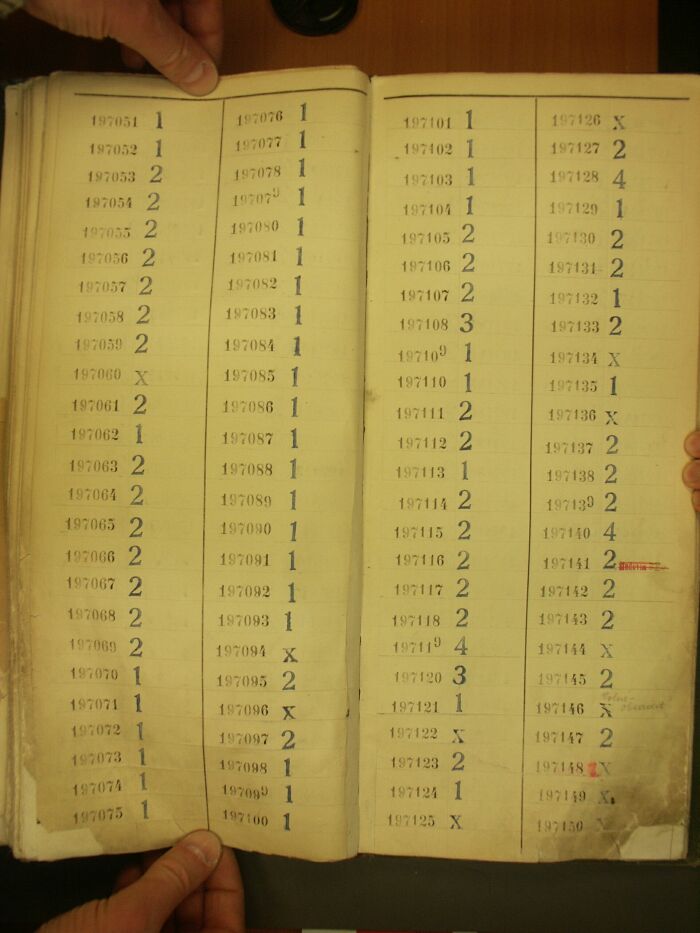 197051 1
197052 1
197053 2
197054 2
197055 2
197056 2
197057 2
197058 2
197059 2
197060 x
197061 2
197062 1
197063 2
197064 2
197065 2
197066 2
197067 2
197068 2
197069 2
197070 1
197071 1
197072 1
197073 1
197074 1
197075 1
197076 1
197077 1
197078 1
197079 1
197080 1
197081 1
197082 1
197083 1
197084 1
197085 1
197086 1
197087 1
197088 1
197089 1
197090 1
197091 1
197092 1
197093 1
197094 x
197095 2
197096 x
197097 2
197098 1
197099 1
197100 1
197101 1
197102 1
197103 1
197104 1
197105 2
197106 2
197107 2
197108 3
197109 1
197110 1
197111 2
197112 2
197113 1
197114 2
197115 2
197116 2
197117 2
197118 2
197119 4
197120 3
197121 1
197122 x
197123 2
197124 1
197125 x
197126 x
197127 2
197128 4
197129 1
197130 2
197131 2
197132 1
197133 2
197134 x
197135 1
197136 x
197137 2
197138 2
197139 2
197140 4
197141 2
197142 2
197143 2
197144 x
197145 2
197146 x
197147 2
197148 x
197149 x
197150 x